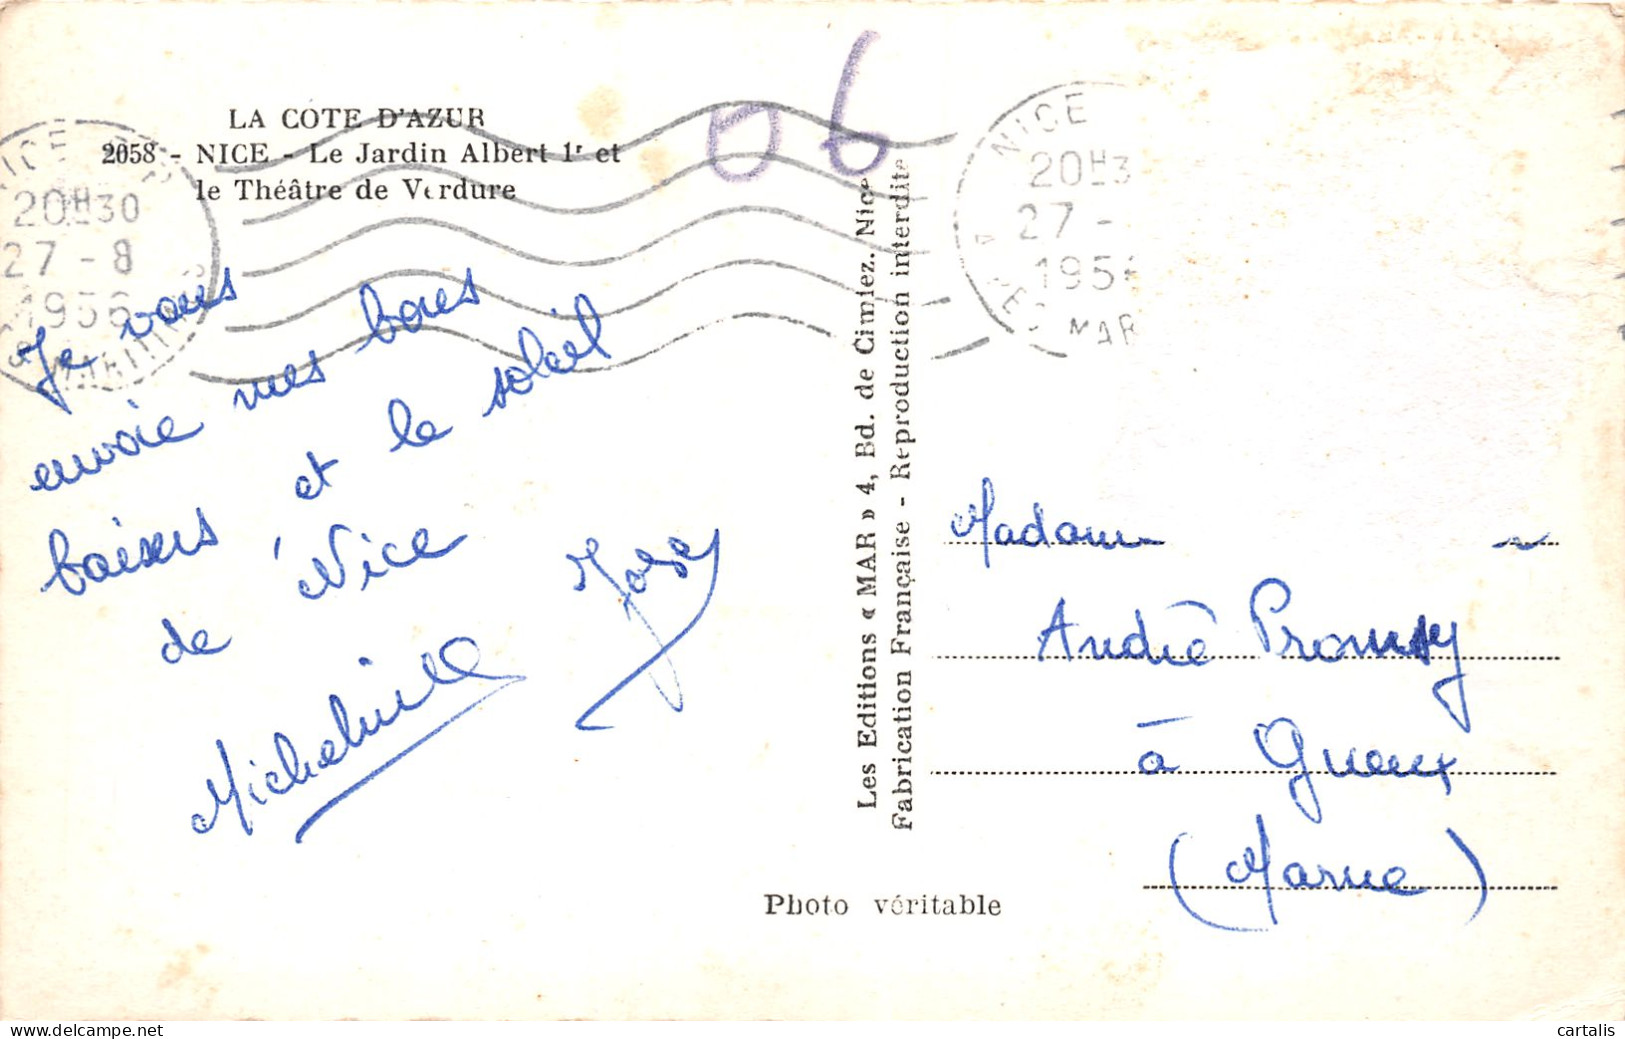 LA COTE D'AZUR
2058 - NICE - Le Jardin Albert 1r et
le Théâtre de Verdure
06
NICE
20H30
27 - 8
1956
Je vous
envoie mes bons
baisers et le soleil
de Nice
Micheline Josey
Les Editions « MAR » 4, Bd. de Cimiez. Nice
Fabrication Française - Reproduction interdite
NICE
20H3
27 -
195
MAR
Madame
André
à Gueux
(Marne)
Photo véritable
cartalis